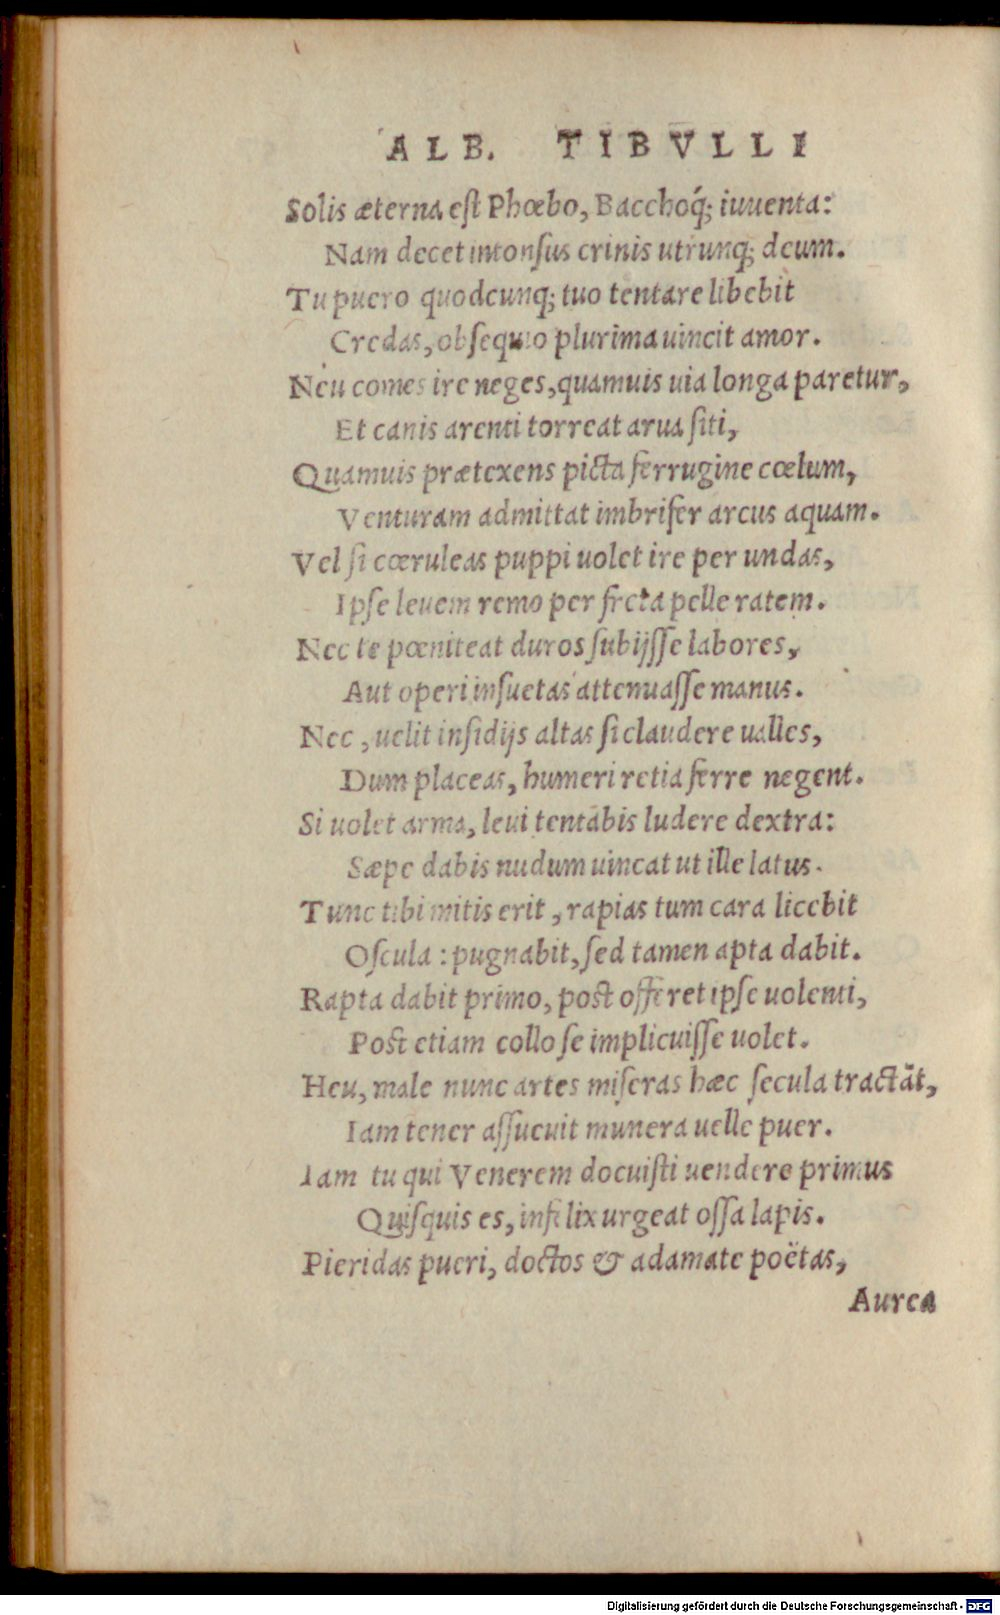 ALB. TIBVLLI
Solis æterna est Phœbo, Bacchoq́; iuuenta:
Nam decet intonsus crinis utrunq; deum.
Tu puero quodcunq; tuo tentare libebit
Credas, obsequio plurima uincit amor.
Neu comes ire neges, quamuis uia longa paretur,
Et canis arenti torreat arua siti,
Quamuis prætexens picta ferrugine cœlum,
Venturam admittat imbrifer arcus aquam.
Vel si cœruleas puppi uolet ire per undas,
Ipse leuem remo per freta pelle ratem.
Nec te pœniteat duros subijsse labores,
Aut operi insuetas attenuasse manus.
Nec, uelit insidijs altas si claudere ualles,
Dum placeas, humeri retia ferre negent.
Si uolet arma, leui tentabis ludere dextra:
Sæpe dabis nudum uincat ut ille latus.
Tunc tibi mitis erit, rapias tum cara licebit
Oscula: pugnabit, sed tamen apta dabit.
Rapta dabit primo, post offeret ipse uolenti,
Post etiam collo se implicuisse uolet.
Heu, male nunc artes miseras hæc secula tractāt,
Iam tener assueuit munera uelle puer.
Iam tu qui Venerem docuisti uendere primus
Quisquis es, infelix urgeat ossa lapis.
Pieridas pueri, doctos & adamate poëtas,
Aurea
Digitalisierung gefördert durch die Deutsche Forschungsgemeinschaft - DFG